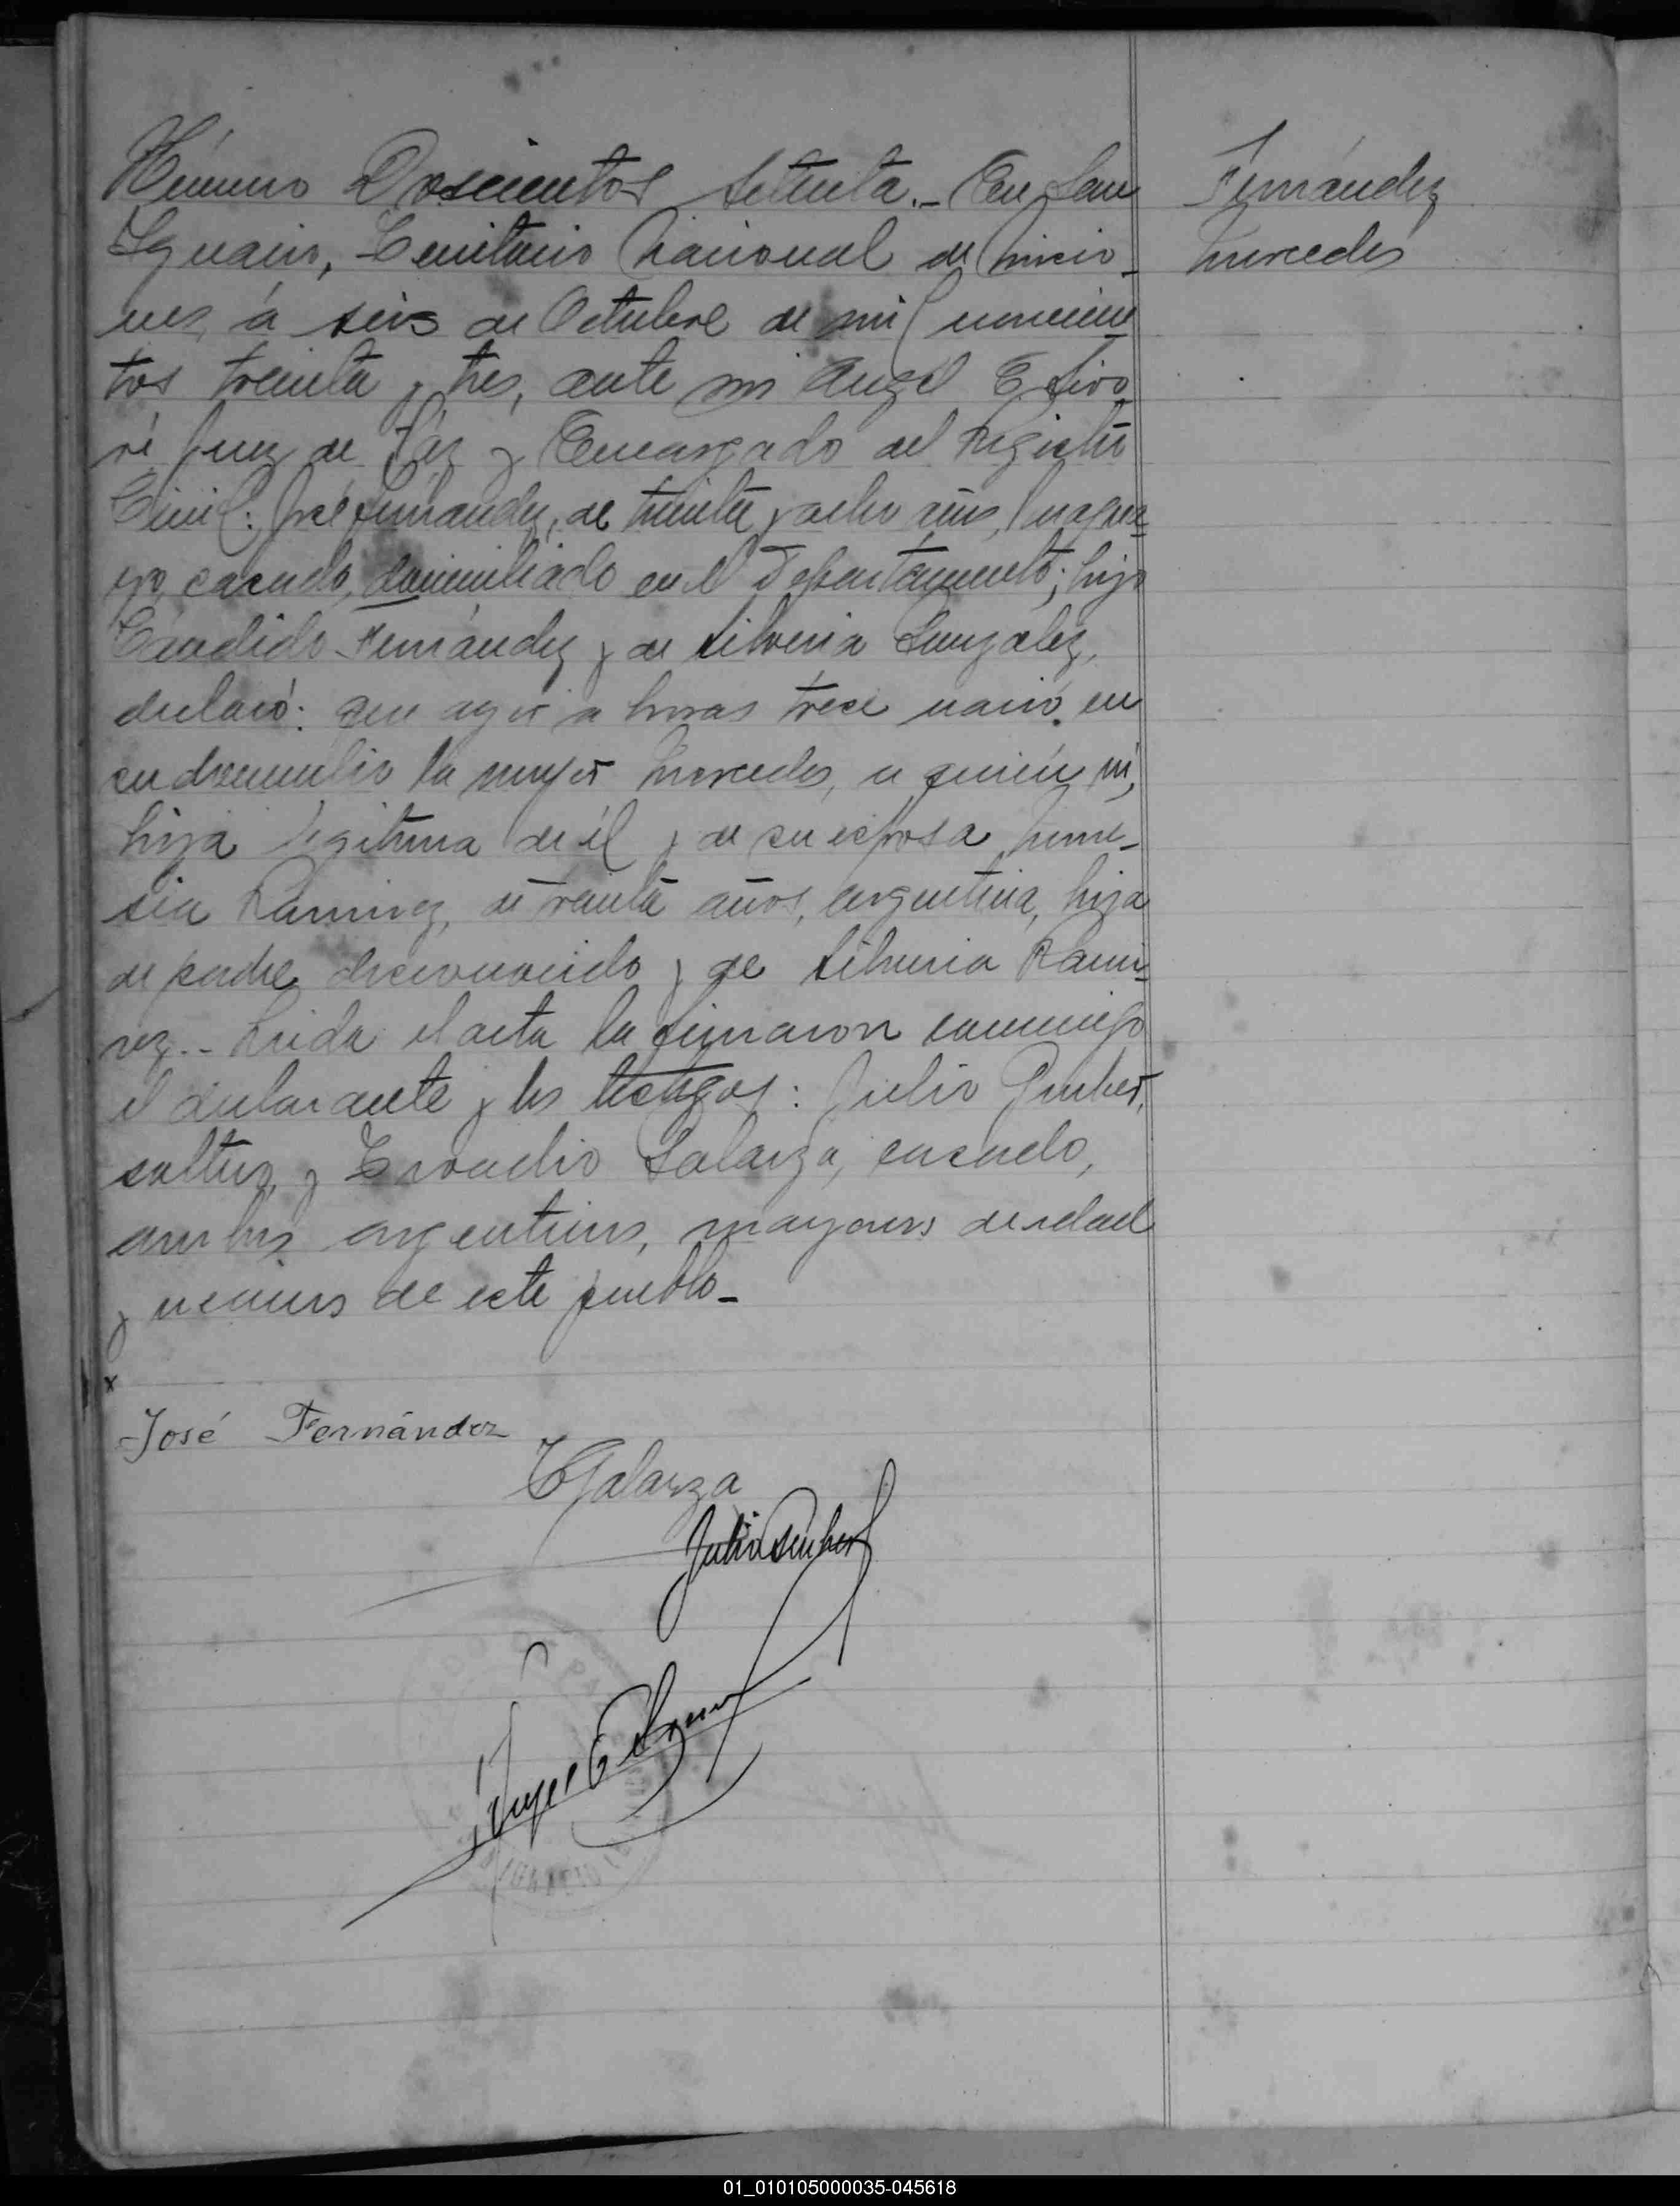 Número Doscientos Setenta.- En San
Ignacio, Territorio Nacional de Misio-
nes, á seis de Octubre de mil novecien
tos treinta y tres, ante mi Angel E
Juez de Páz y Encargado del Registro
Civil: José Fernández, de treinta y ocho años, paragua-
yo, casado, domiciliado en el Departamento; hijo
Cándido Fernández y de Silveria González,
declaró: que ayer a horas trece nació en
su domicilio la mujer Mercedes, a quién ví,
hija legitima de él y de su esposa
Ramirez, de treinta años, argentina, hija
de padre desconocido y de Silveria Rami-
rez.- Leida el acta la firmaron conmigo
el declarante y los testigos: Julio Gimbert,
soltero, y Evaudio Galarza, casado,
ambos argentinos, mayores de edad
y vecinos de este pueblo-
x
José Fernández
EGalarza
Julio
Angel E
Fernández
Mercedes
01_010105000035-045618